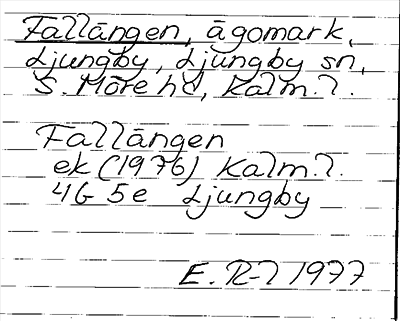 Fallängen, ägomark,
Ljungby, Ljungby sn,
S. Möre hd, Kalm. l.
Fallängen
ek (1976) Kalm. l.
4G 5e Ljungby
E. R-l 1977